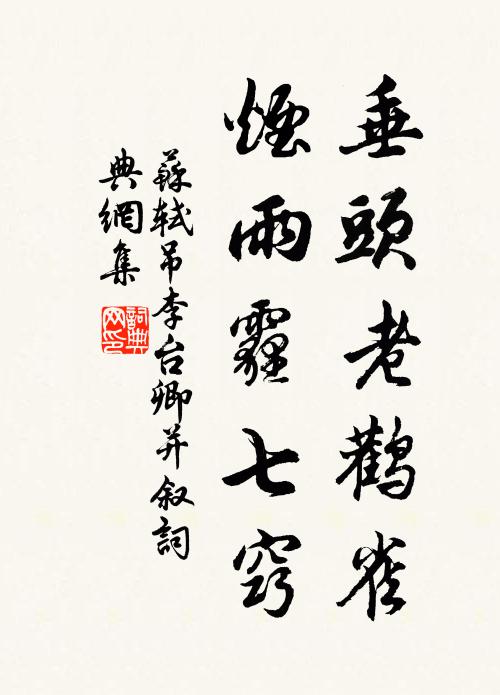 垂頭老鸛雀
煙雨霾七竅
蘇軾吊李台卿并叙詞
典網集
詞典
网印